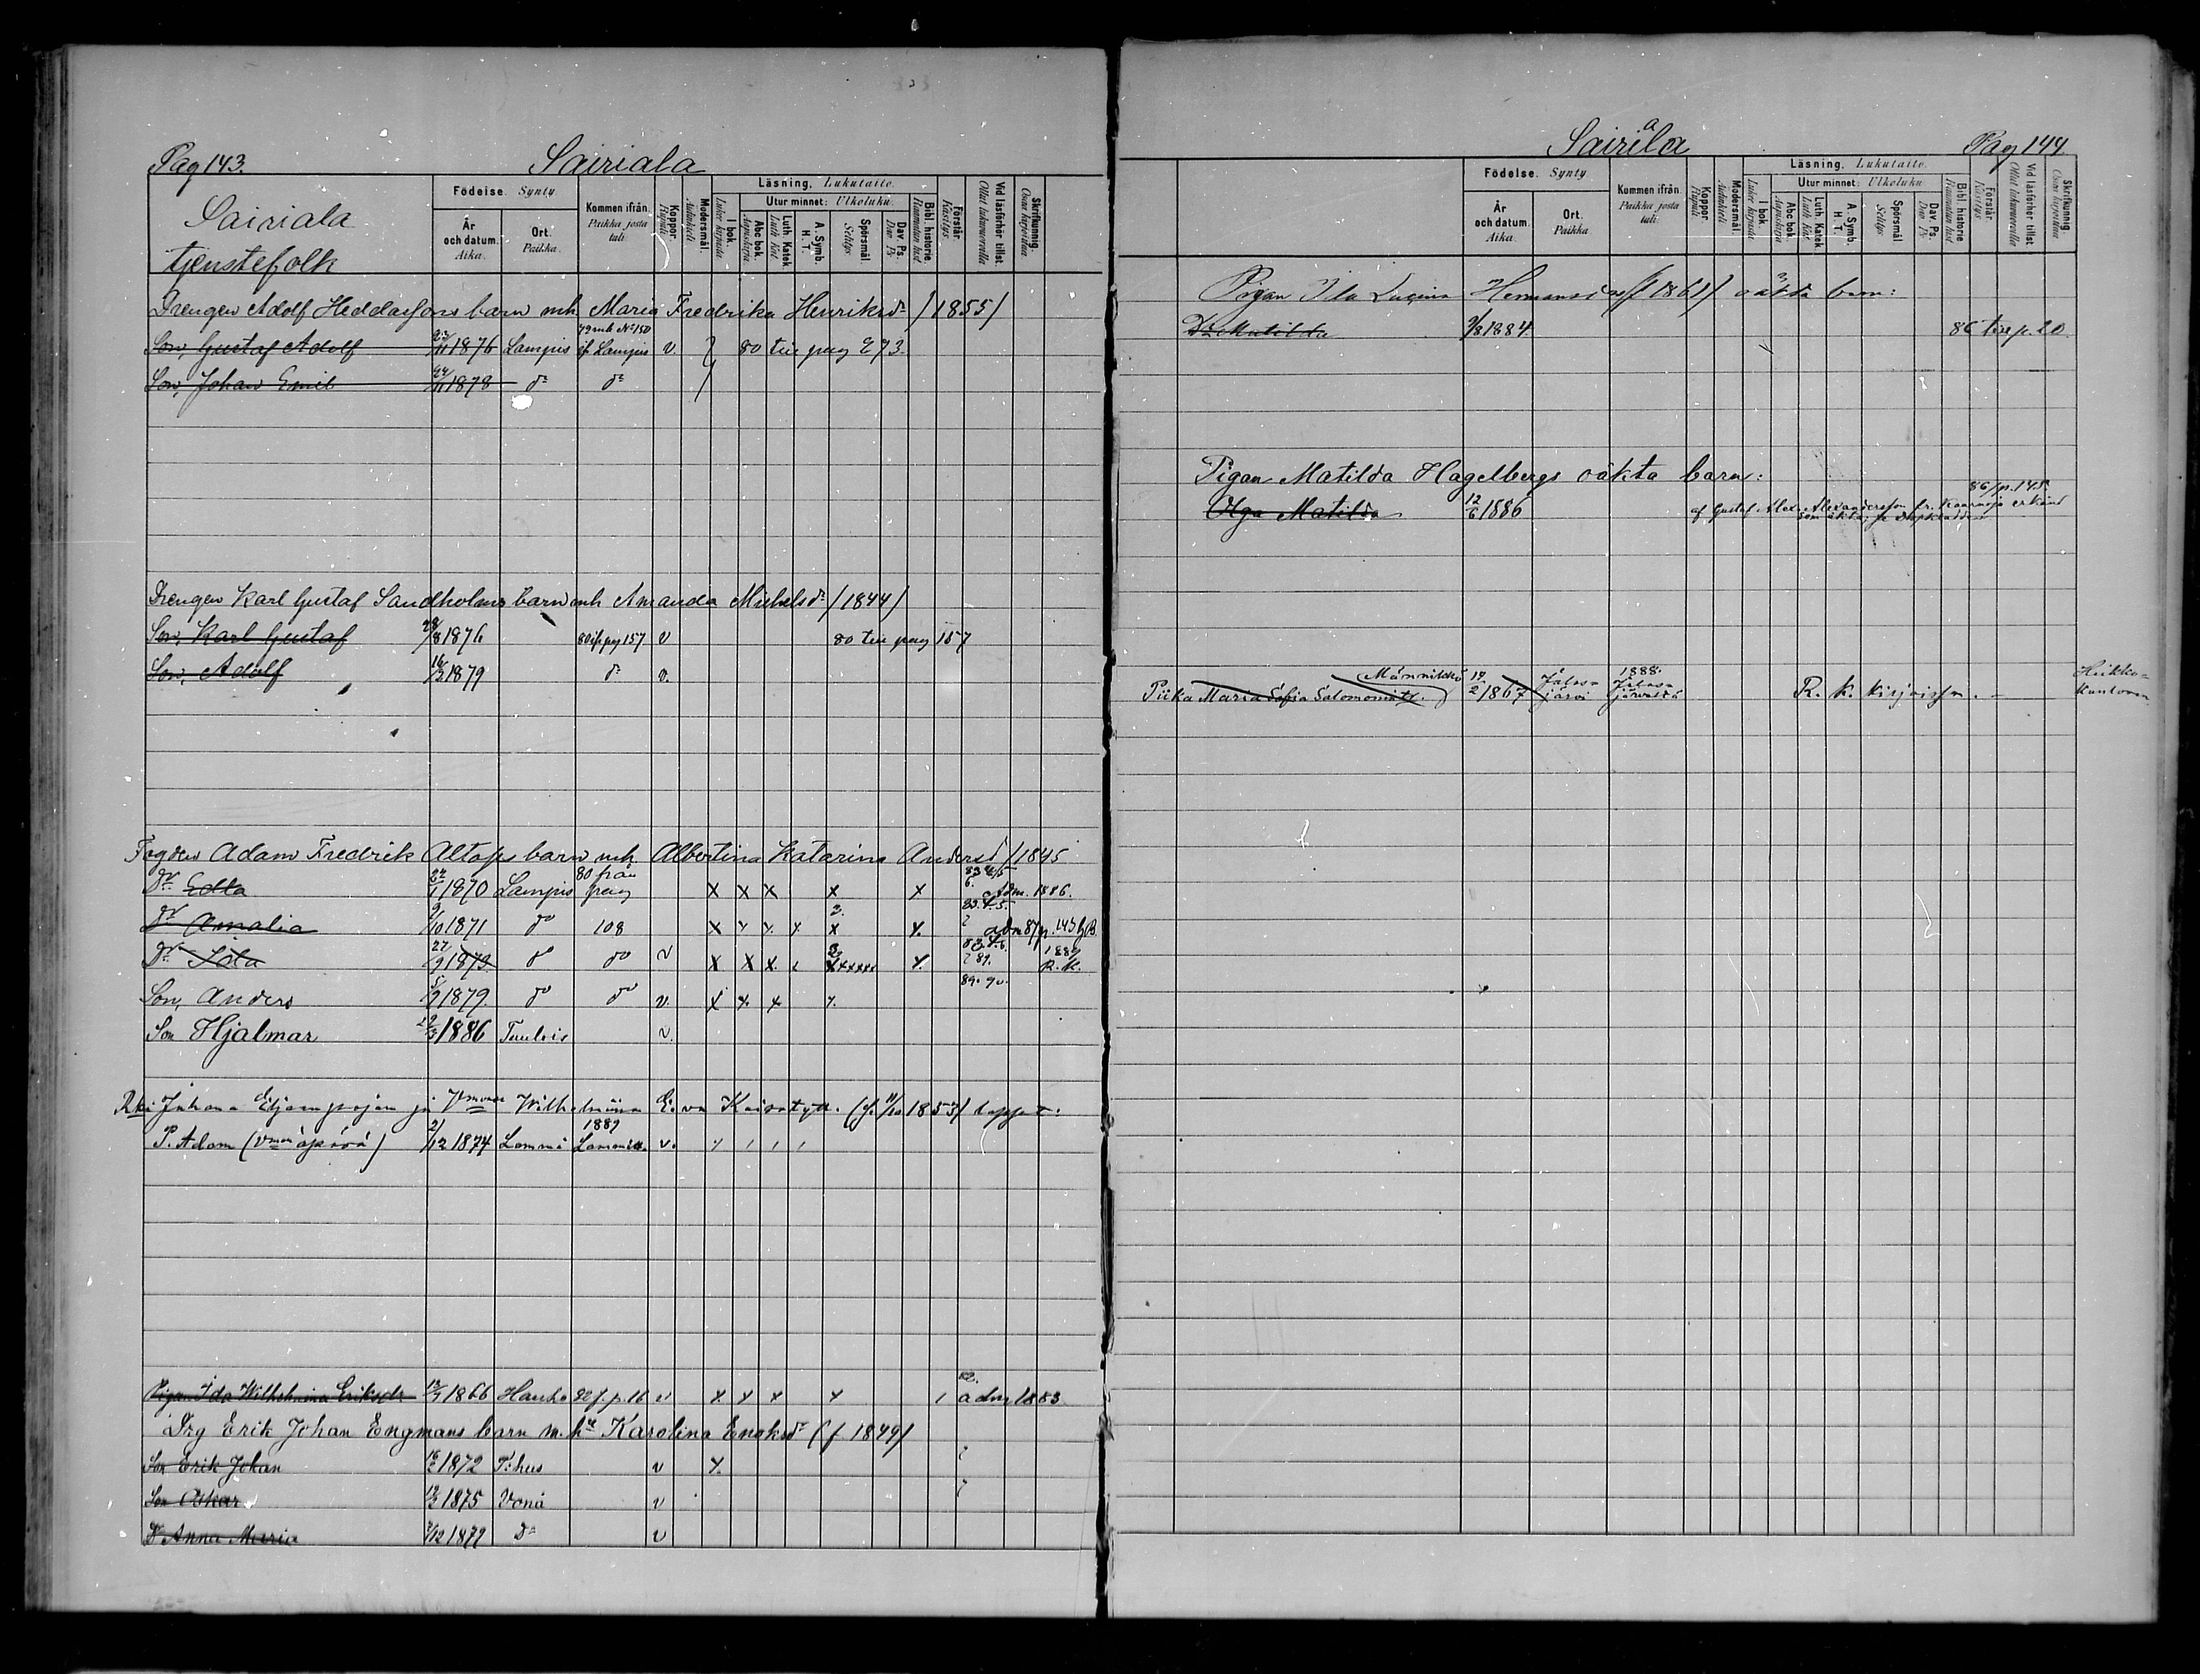 Pag 143.
Sairiala
Sairiala
tjenstefolk
Födelse. Synty.
År och datum. Aika.
Ort. Paikka.
Kommen ifrån. Paikka josta tuli.
Koppor. Rupuli
Modersmål. Äidinkieli
Läsning. Lukutaito.
I bok. Lukee kirjasta
Utur minnet: Ulkoluku.
Abc bok. Aapiskirja
Luth. Katek. Luth. Kat.
A. Symb. H. T.
Spörsmål. Selitys
Dav. Ps. Dav. Ps
Bibl. historie. Raamatun hist
Förstår. Käsitys.
Vid läsförhör tillst. Ollut lukuvuorolla
Skrifkunnig. Osaa kirjoittaa
Drengen Adolf Heddarfons barn mh. Maria Fredrika Henriksdr /1855/
Son, Gustaf Adolf 25/11 1876 Lampis 79 mh No 150 if Lampis v. 80 tie pag 273.
Son, Johan Emil 24/11 1878 do do
Drengen Karl Gustaf Sandholms barn mh Amanda Michelsdr /1844/
Son, Karl Gustaf 28/8 1876 80 if pag 157 v 80 tie pag 157
Son, Adolf 16/3 1879 do v.
Fogden Adam Fredrik Altops barn mh Albertina Katarina Andersd /1845
Dr Edla 24/1 1870 Lampis 80 från pag x x x x x 6. Adm. 1886.
Dr Amalia 9/10 1871 do 108 x x x x x x. adm 87 p. 143
Dr Ida 27/9 1873. do do v x x x. x. 89. 1889 R. K.
Son, Anders 5/9 1879. do do v. x x x x. 89. 90.
Son Hjalmar 19/3 1886 Tuulois v.
Rki Juhana Wilhelmiina Eeva (s. 11/10 1853) lapset:
P. Adam 21/12 1874 Lammi 1889 Lammilta. v.
Pigan Ida Wilhelmina Eriksdr 13/7 1866 Hauho 82 f. p. 16 v x x x x 1 82. adm 1883.
Drg Erik Johan Engmans barn m. hu Karolina Enoksdr (f 1849)
Son Erik Johan 16/2 1872 T:hus v x.
Son Oskar 12/3 1875 Vånå v
Dr Anna Maria 7/12 1877 Do v
Sairiala
Pag 144.
Födelse. Synty
År och datum. Aika.
Ort. Paikka
Kommen ifrån. Paikka josta tuli.
Koppor. Rupuli
Modersmål. Äidinkieli
Läsning. Lukutaito.
I bok. Lukee kirjasta
Utur minnet: Ulkoluku
Abc bok. Aapiskirja
Luth. Katek. Luth. Kat.
A. Symb. H. T.
Spörsmål Selitys
Dav. Ps. Dav. Ps
Bibl. historie Raamatun hist
Förstår Käsitys
Vid läsförhör tillst. Ollut lukuvuorolla
Skrifkunnig. Osaa kirjoittaa
Pigan Ida Lucina Hermansd /1861/ oäkta barn:
Dr Matilda 9/8 1884. 86 tie p. 20
Pigan Matilda Hagelbergs oäkta barn: 86/p. 145.
Olga Matilda 12/6 1886 af Gustaf Alex. Alexandersson fr. erkänd
som äkta,
Männikkö
Piika Maria Sofia Salomonintr. 17/2 1867 Jalasjärvi 1888. Jalasjärveltä R. K. Heikko-